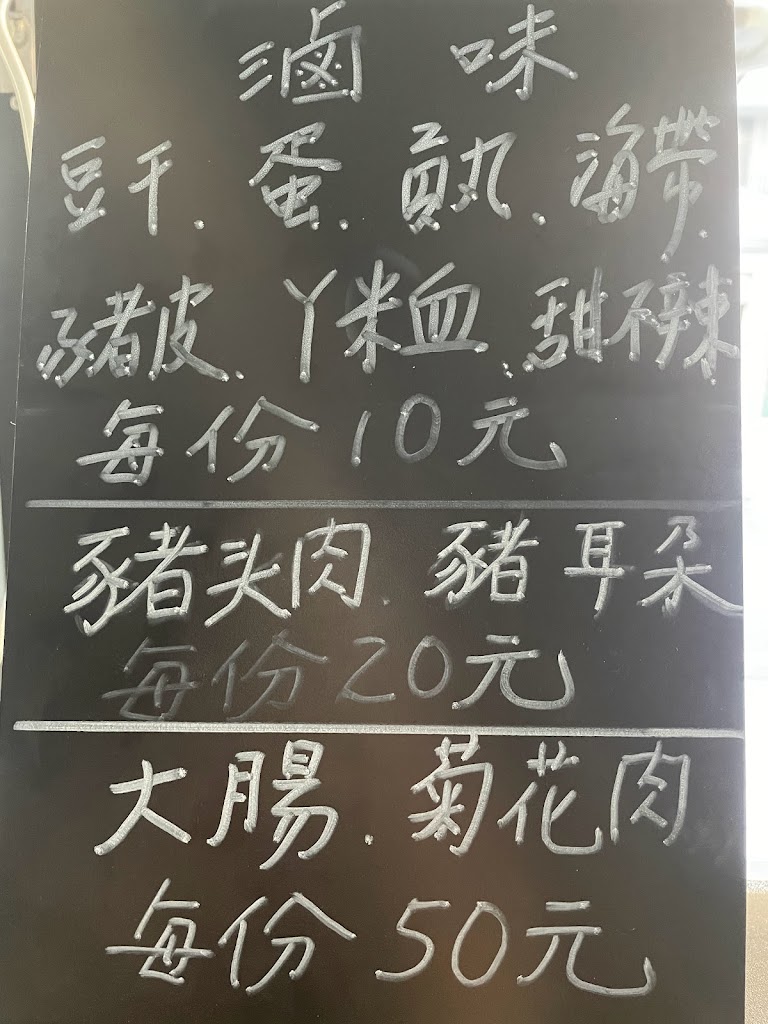 滷味
豆干、蛋、貢丸、海帶、
豬皮、丫米血、甜不辣
每份10元
豬头肉、豬耳朵
每份20元
大腸、菊花肉
每份50元